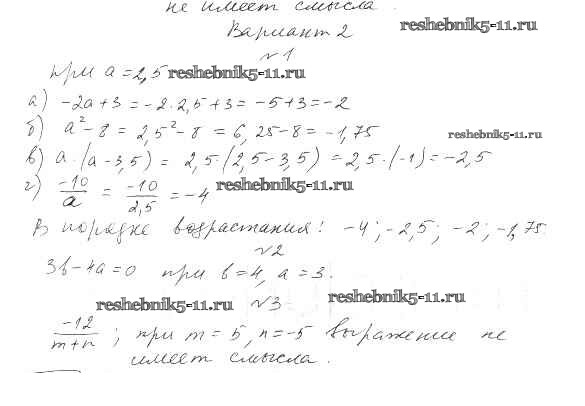 не имеет смысла.
Вариант 2 reshebnik5-11.ru
№1
при a = 2,5 reshebnik5-11.ru
а) -2a+3 = -2·2,5+3 = -5+3 = -2
б) a²-8 = 2,5²-8 = 6,25-8 = -1,75 reshebnik5-11.ru
в) a·(a-3,5) = 2,5·(2,5-3,5) = 2,5·(-1) = -2,5
г) -10/a = -10/2,5 = -4 reshebnik5-11.ru
В порядке возрастания: -4; -2,5; -2; -1,75.
№2
3b-4a=0 при b=4, a=3.
reshebnik5-11.ru №3 reshebnik5-11.ru
-12/m+n ; при m=5, n=-5 выражение не
имеет смысла.